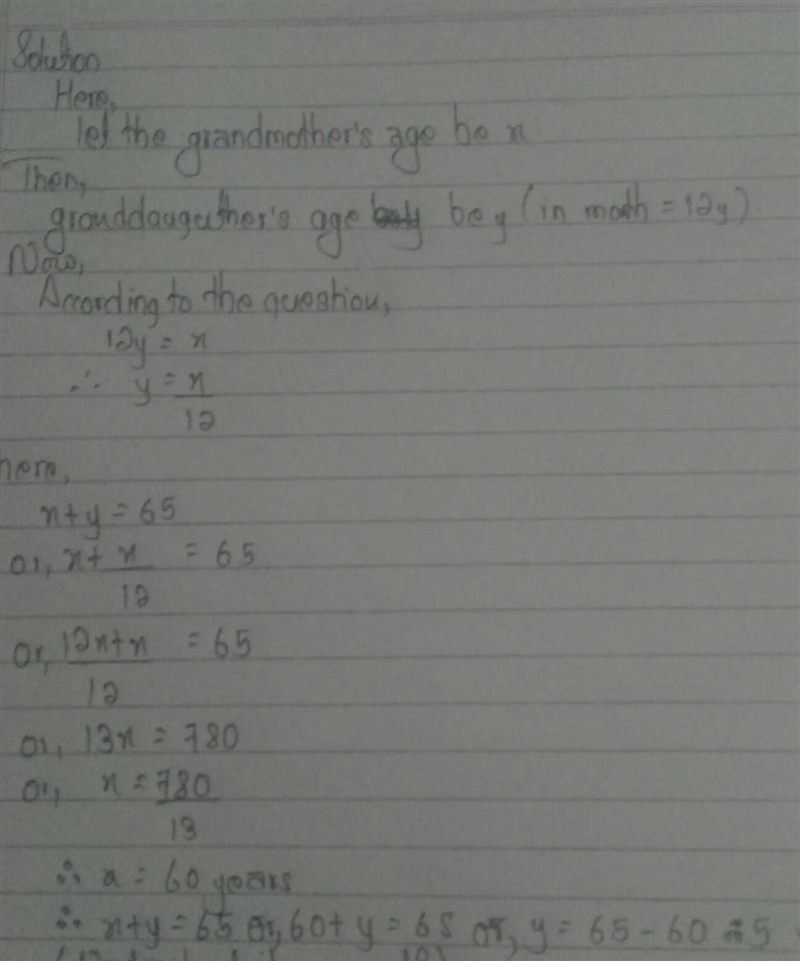 Solution
Here,
let the grandmother's age be x
Then,
granddaugather's age be y (in month = 12y)
Now,
According to the question,
12y = x
∴ y = x/12
here,
x+y = 65
or, x+x/12 = 65
or, 12x+x/12 = 65
or, 13x = 780
or, x = 780/13
∴ x = 60 years
∴ x+y = 65 or, 60+y = 65 or, y = 65-60 = 5